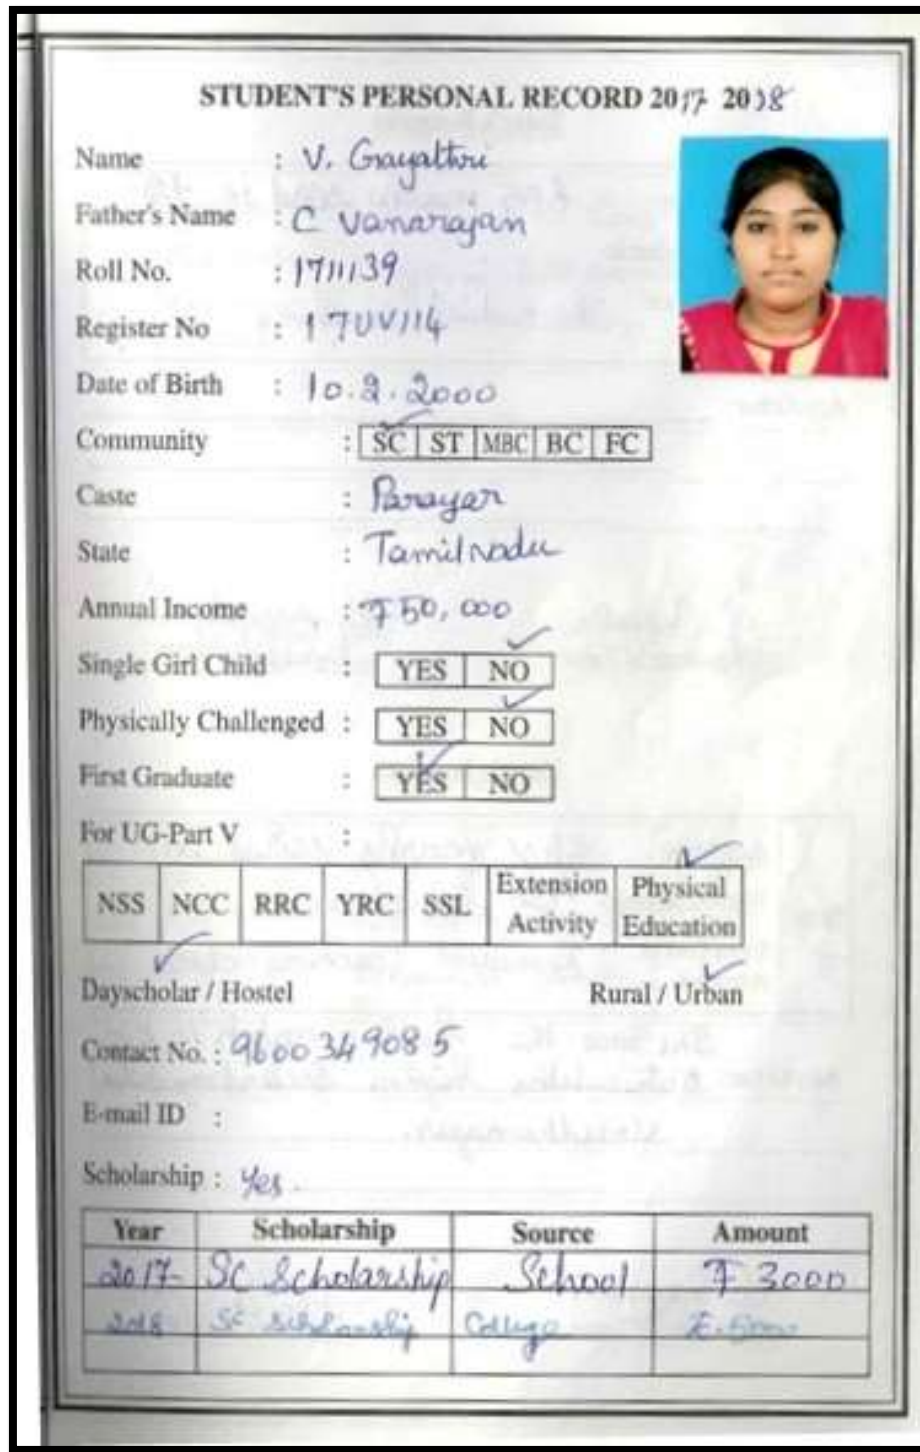 STUDENT'S PERSONAL RECORD 2017 2018
Name : V. Gayathri
Father's Name : C Vanarajan
Roll No. : 1711139
Register No : 17UV114
Date of Birth : 10.2.2000
Community : SC ST MBC BC FC
Caste : Parayar
State : Tamilnadu
Annual Income : ₹ 50,000
Single Girl Child : YES NO
Physically Challenged : YES NO
First Graduate : YES NO
For UG-Part V :
NSS NCC RRC YRC SSL Extension Activity Physical Education
Dayscholar / Hostel Rural / Urban
Contact No. : 9600349085
E-mail ID :
Scholarship : Yes.
Year Scholarship Source Amount
2017 SC Scholarship School ₹ 3000
2018 SC Scholarship College